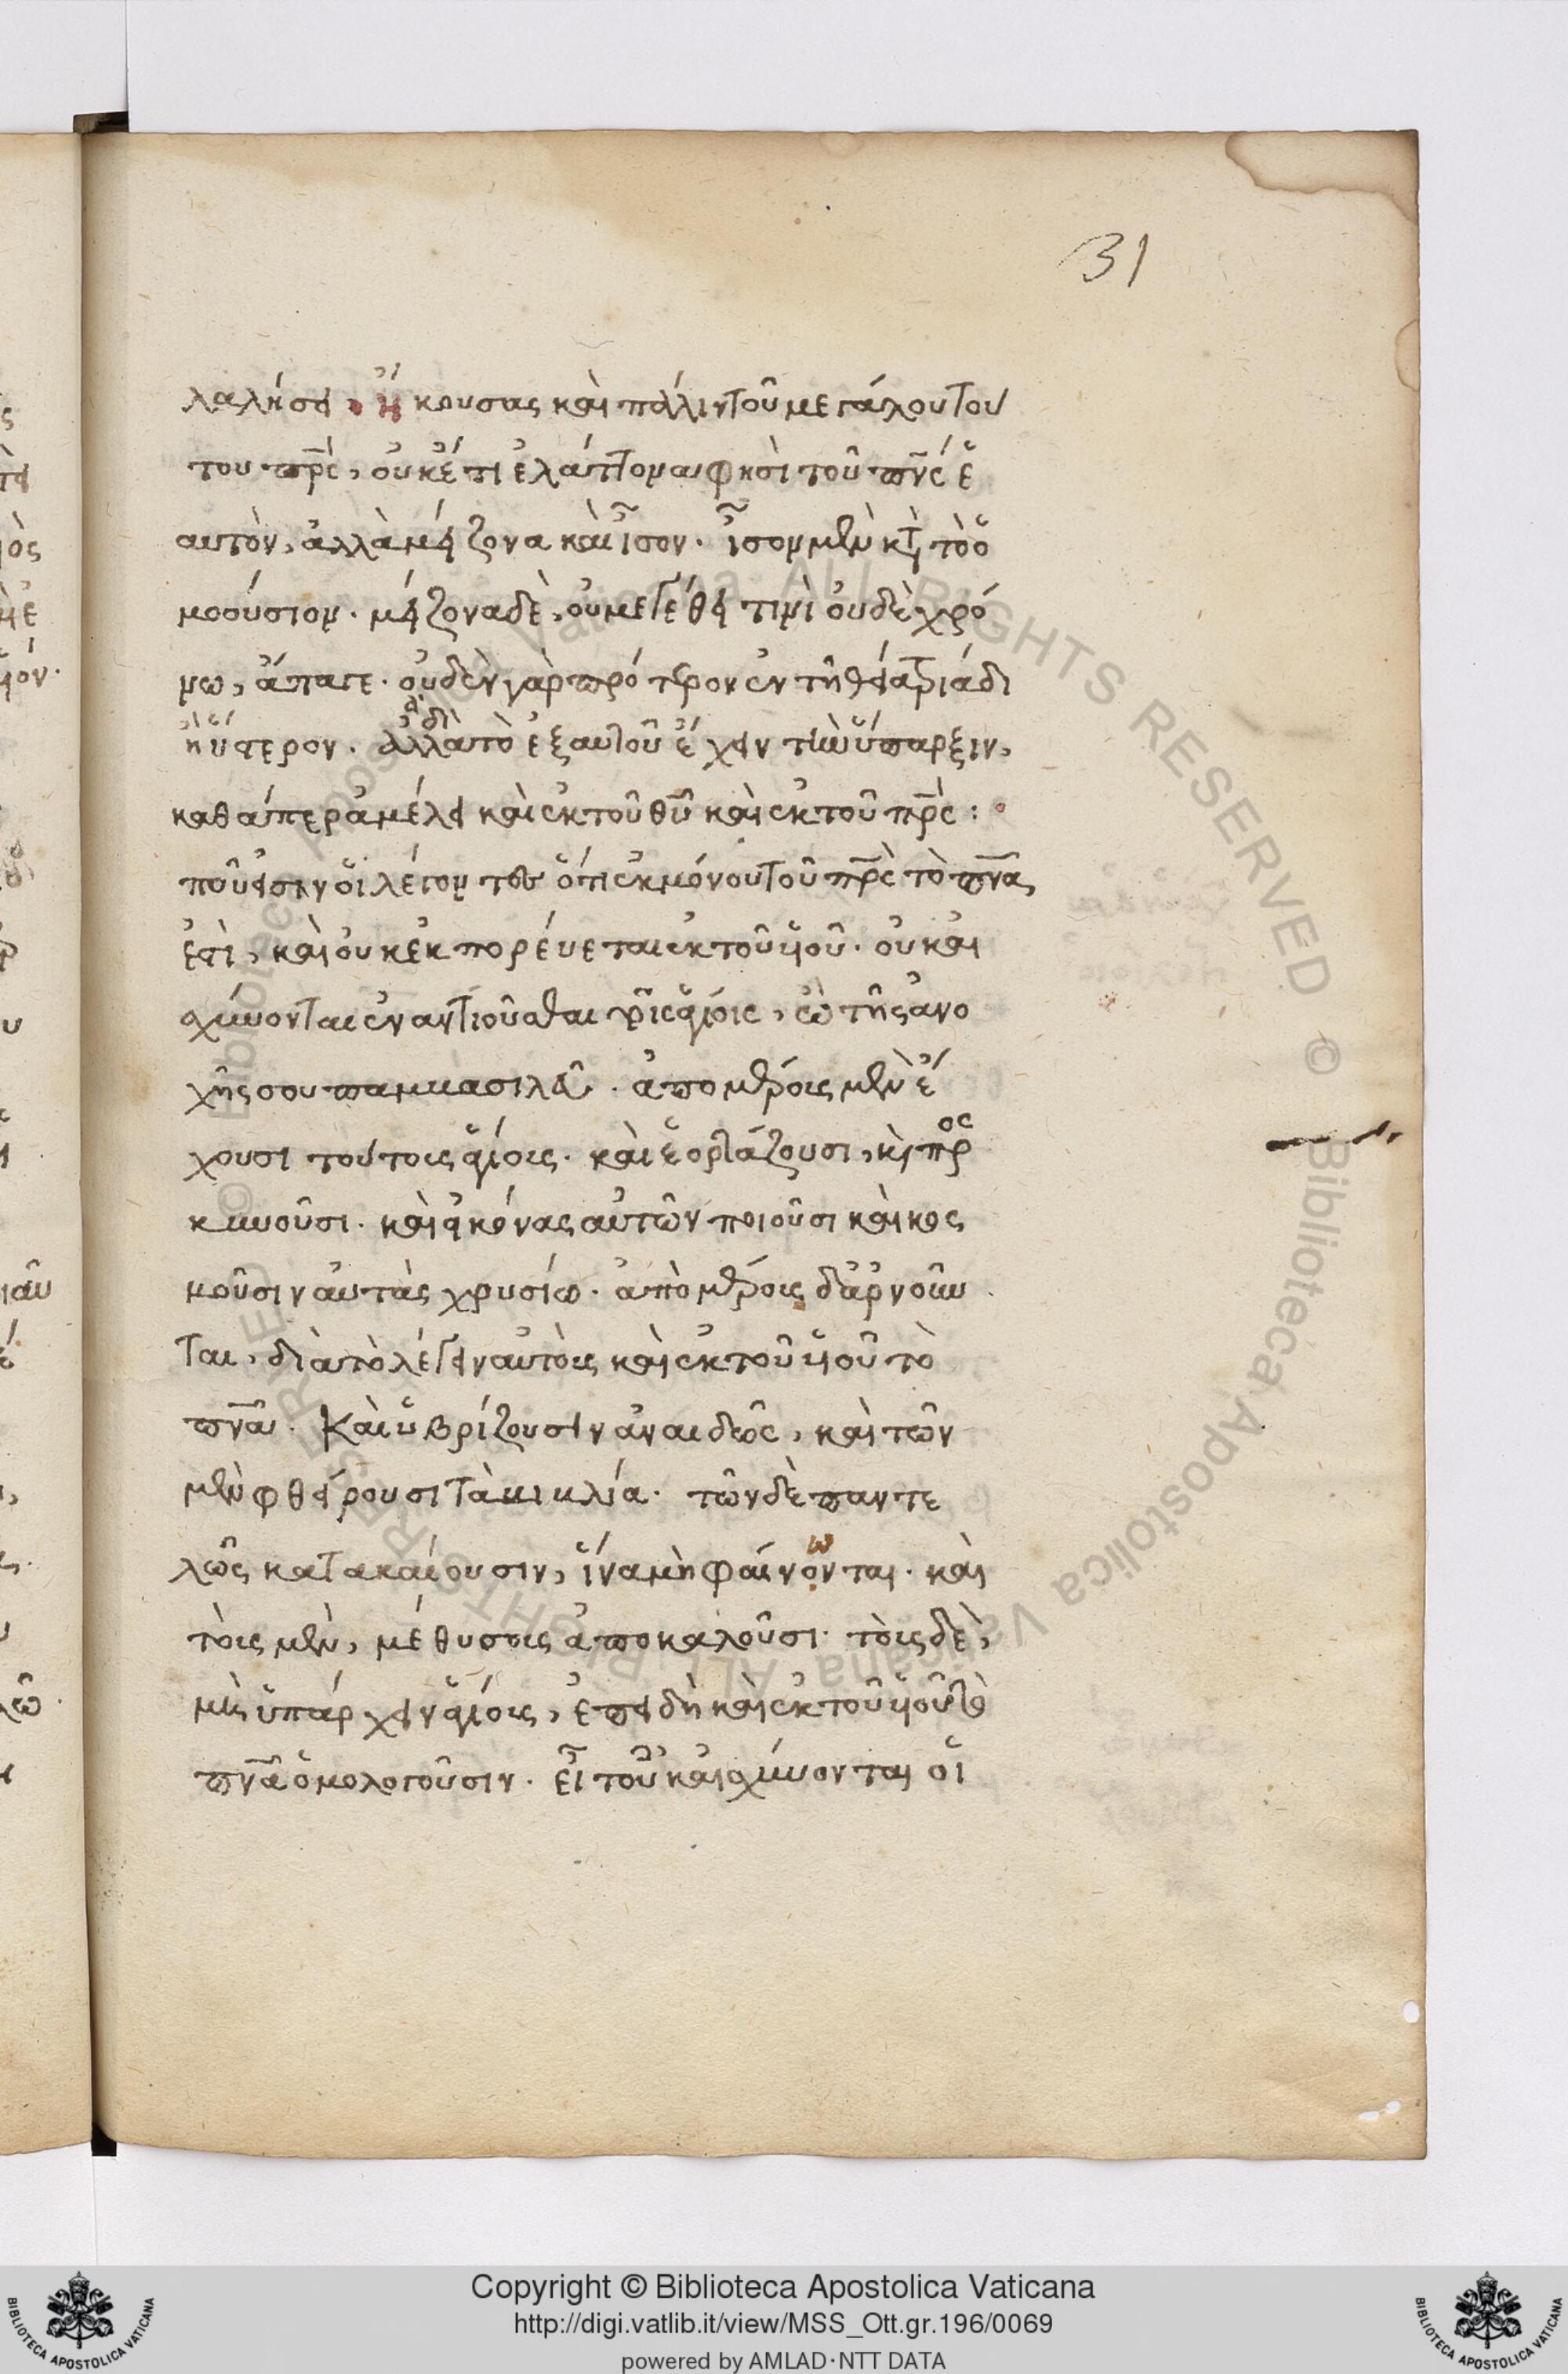 31
λαλήσει. ἤκουσας καὶ πάλιν τοῦ μεγάλου τού
του πρς, οὐκέτι ἐλάττομαι φησὶ τοῦ πνς ἑ
αυτὸν, ἀλλὰ μείζονα καὶ ἶσον. ἶσον μὲν κτ τὸ ὁ
μοούσιον. μείζονα δὲ, οὐ μεγέθει τινὶ οὐδὲ χρό
νω, ἄπαγε. οὐδὲν γὰρ πρότερον ἐν τῆ θεία τριάδι
ἢ ὕστερον. ἀλλὰ διὰ τὸ ἐξ αυτοῦ ἔχειν τὴν ὕπαρξιν,
καθάπερ ἀμέλει καὶ ἐκ τοῦ θυ καὶ ἐκ τοῦ πρς:
ποῦ εἰσιν οἱ λέγοντες ὅτι ἐκ μόνου τοῦ πρς τὸ πνα
ἐστὶ, καὶ οὐκ ἐκπορεύεται ἐκ τοῦ υἱοῦ. οὐκ αἰ
σχύνονται ἐναντιοῦσθαι τοῖς ἁγίοις, ὢ τῆς ἀνο
χῆς σου παμβασιλεῦ. ἀπὸ μέρους μὲν ἔ
χουσι τούτους ἁγίους. καὶ ἑορτάζουσι, κὶ προσ
κυνοῦσι. καὶ εἰκόνας αὐτῶν ποιοῦσι καὶ κοσ
μοῦσιν αὐτὰς χρυσίω. ἀπὸ μέρους δ' ἀρνοῦν
ται, διὰ τὸ λέγειν αὐτοὺς καὶ ἐκ τοῦ υἱοῦ τὸ
πνα. καὶ ὑβρίζουσιν ἀναιδῶς, καὶ τῶν
μὲν φθείρουσι τὰ βιβλία. τῶν δὲ παντε
λῶς κατακαίουσιν, ἵνα μὴ φαίνωνται. καὶ
τοὺς μὲν, μεθύσους ἀποκαλοῦσι. τοὺς δὲ,
μὴ ὑπάρχειν ἁγίους, ἐπειδὴ καὶ ἐκ τοῦ υἱοῦ τὸ
πνα ὁμολογοῦσιν. εἶτ' οὐκ αἰσχύνονται οἱ
Copyright © Biblioteca Apostolica Vaticana
http://digi.vatlib.it/view/MSS_Ott.gr.196/0069
powered by AMLAD·NTT DATA